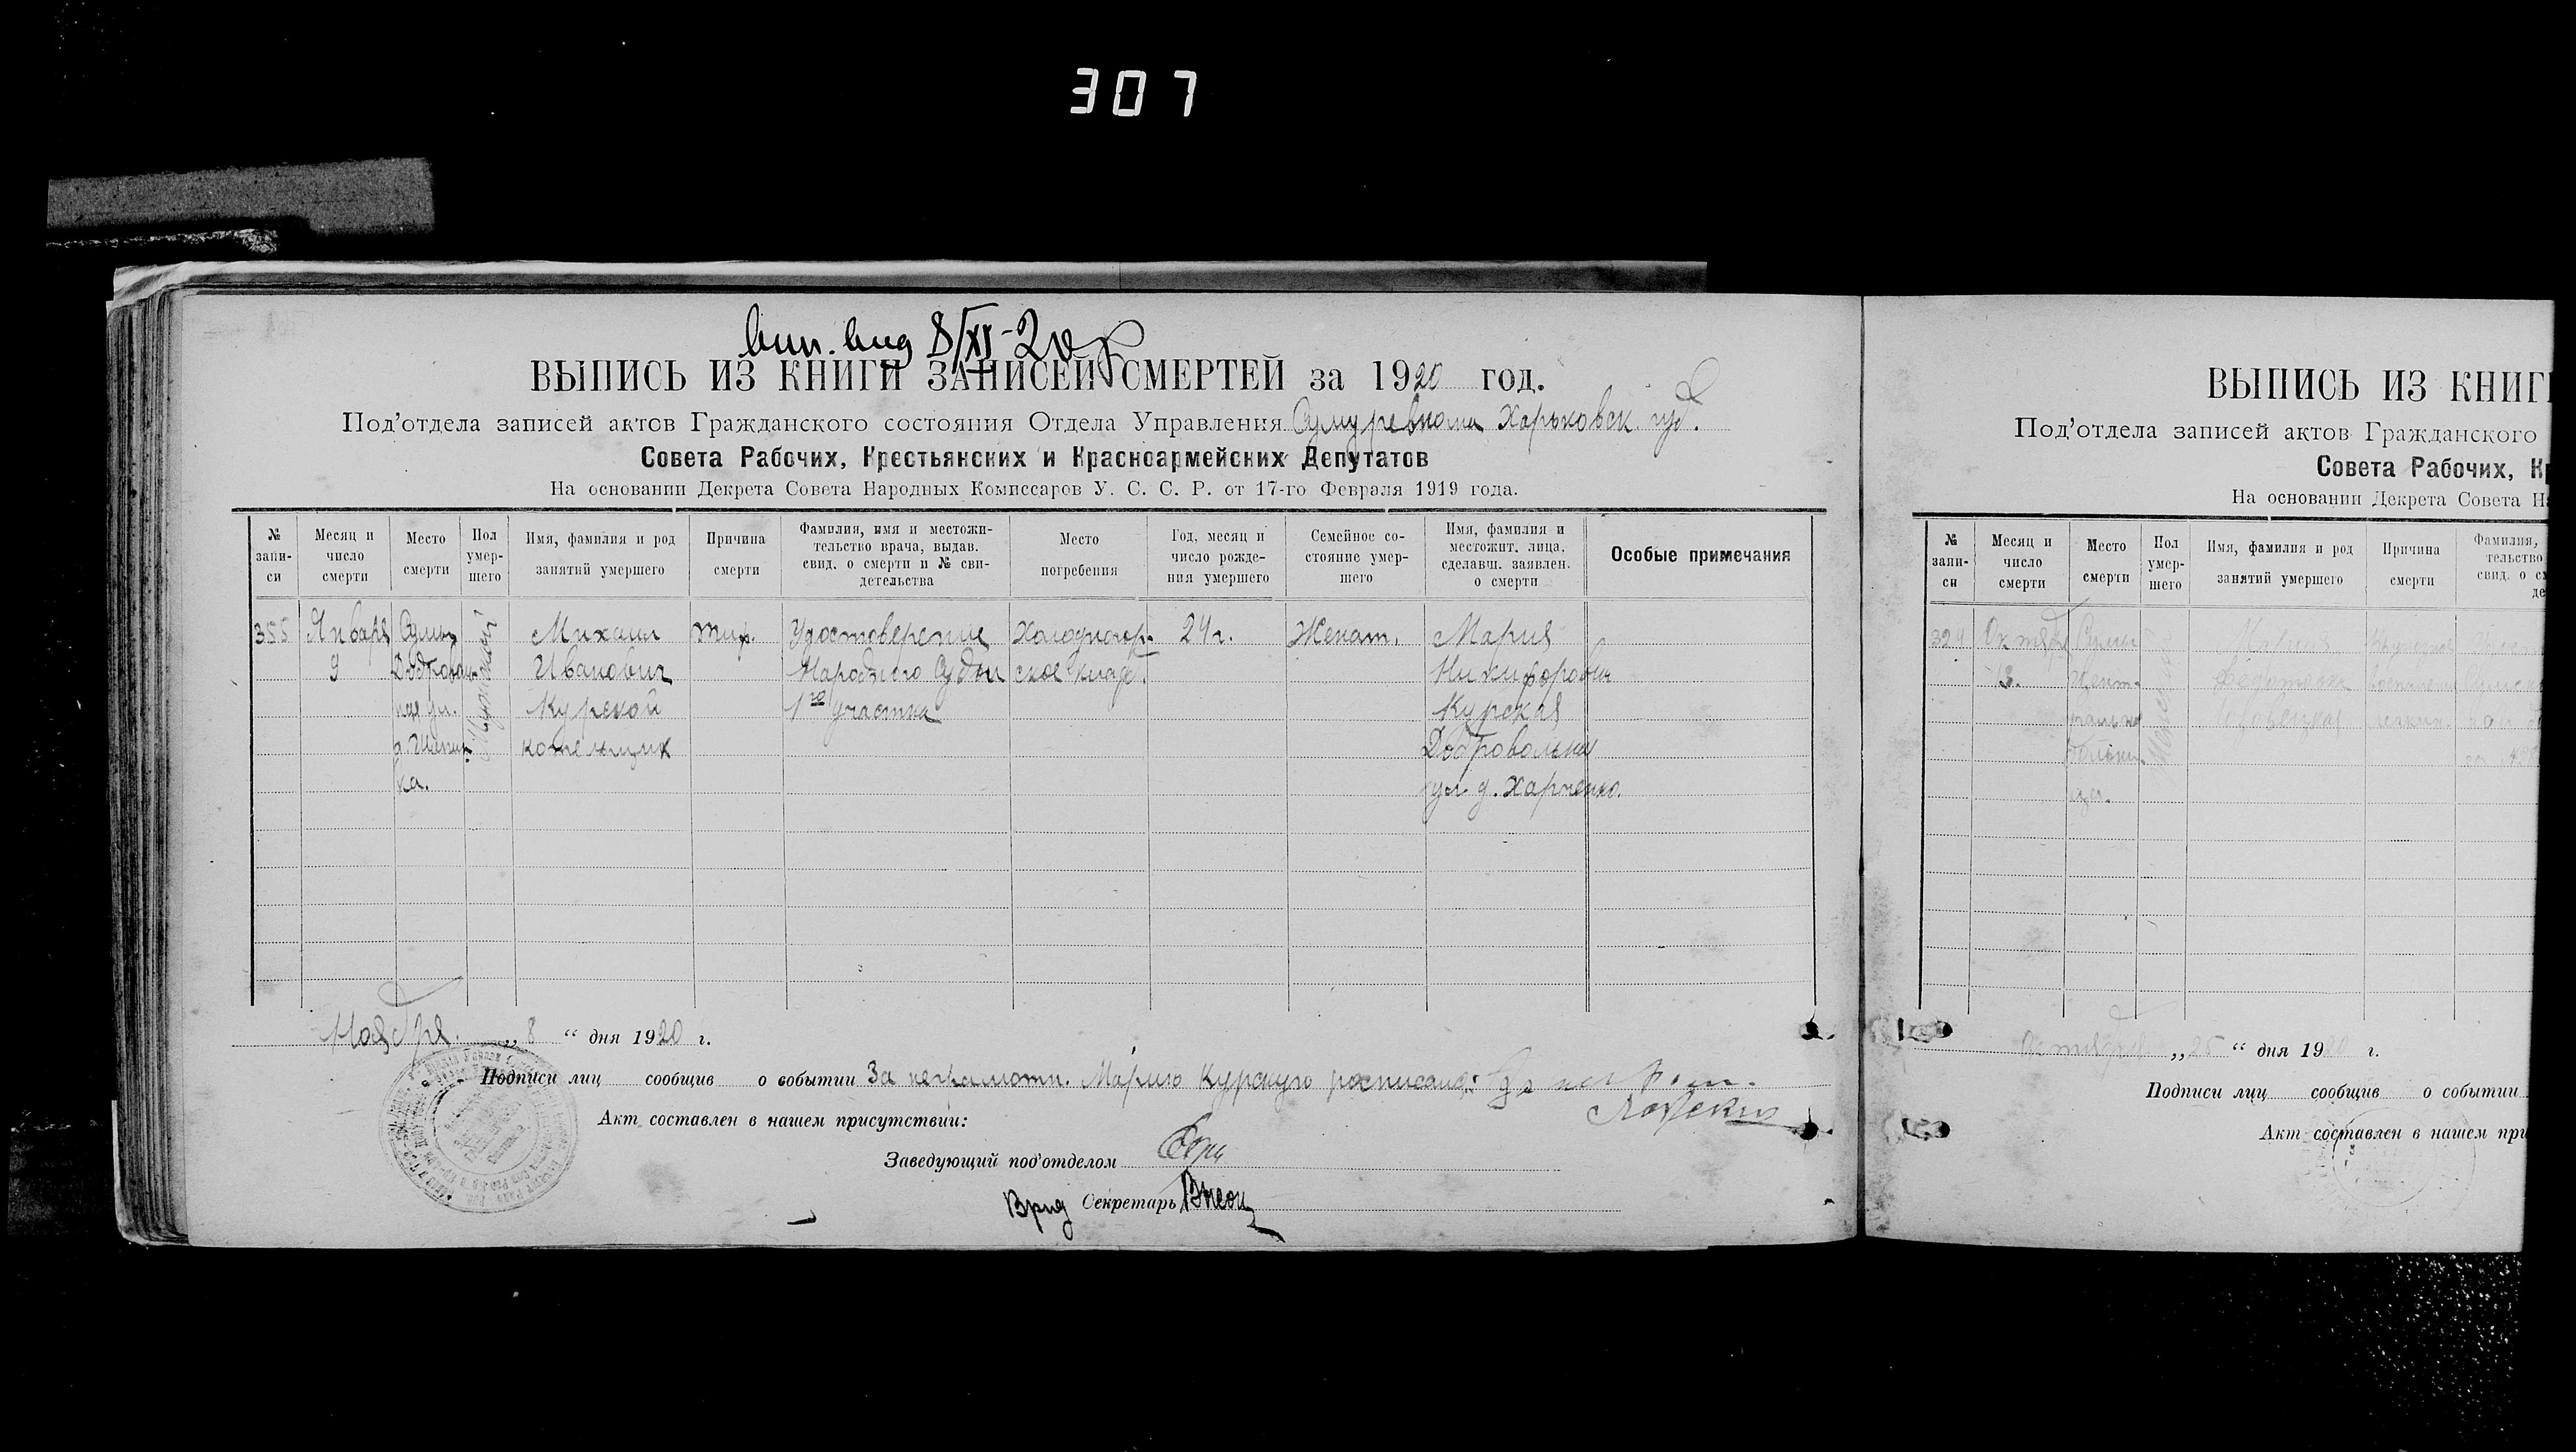 307
вып. выд 8/XI-20
ВЫПИСЬ ИЗ КНИГИ ЗАПИСЕЙ СМЕРТЕЙ за 1920 год.
Под'отдела записей актов Гражданского состояния Отдела Управления Сумуревкома Харьковск. губ.
Совета Рабочих, Крестьянских и Красноармейских Депутатов
На основании Декрета Совета Народных Комиссаров У. С. С. Р. от 17-го Февраля 1919 года.
№ запи-си
Месяц и число смерти
Место смерти
Пол умер-шего
Имя, фамилия и род занятий умершего
Причина смерти
Фамилия, имя и местожи-тельство врача, выдав. свид. о смерти и № сви-детельства
Место погребения
Год, месяц и число рожде-ния умершего
Семейное со-стояние умер-шего
Имя, фамилия и местожит. лица, сделавш. заявлен. о смерти
Особые примечания
355 Января Сумы Мужской Михаил тиф. Удостоверение Холодногор- 24 г. Женат. Мария
9 Доброволь- Иванович Народного Судьи ское кладб. Никифоровна
ная ул. Курской 1го участка Курская
котельщик Добровольная
ка. ул д. Харченко.
Ноября „ 8 “ дня 1920 г.
Подписи лиц сообщив о событии За неграмотн. Марию Курскую росписался:
Акт составлен в нашем присутствии:
Заведующий под'отделом
Врид Секретарь
ВЫПИСЬ ИЗ КНИГ
Под'отдела записей актов Гражданского
Совета Рабочих, Кр
На основании Декрета Совета На
№ запи-си
Месяц и число смерти
Место смерти
Пол умер-шего
Имя, фамилия и род занятий умершего
Причина смерти
Фамилия,
тельство
свид. о с
де
324 Октября Сумы Женский Мария
13. Цент-
ральная
больни-
ца.
Октября „ 25 “ дня 1920 г.
Подписи лиц сообщив о событии
Акт составлен в нашем при